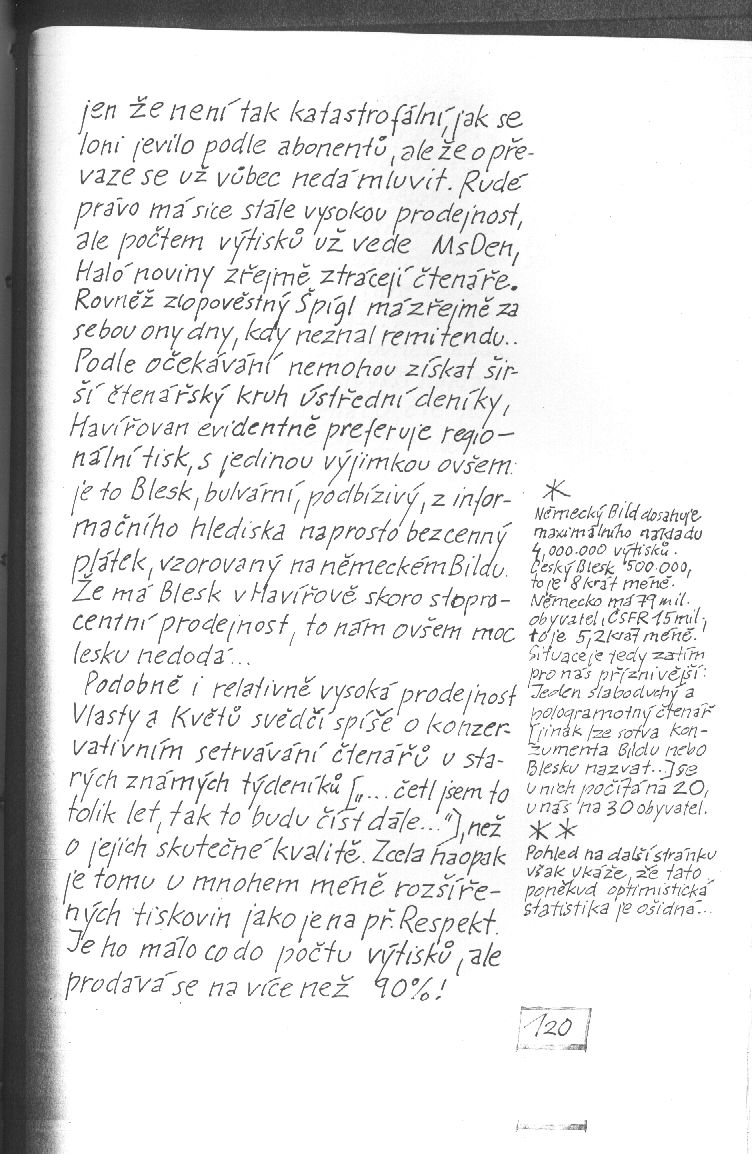 jen že není tak katastrofální, jak se
loni jevilo podle abonentů, ale že o pře-
vaze se už vůbec nedá mluvit. Rudé
právo má sice stále vysokou prodejnost,
ale počtem výtisků už vede MsDen,
Haló noviny zřejmě ztrácejí čtenáře.
Rovněž zlopověstný Špígl má zřejmě za
sebou ony dny, kdy neznal remitendu..
Podle očekávání nemohou získat šir-
ší čtenářský kruh ústřední deníky,
Havířovan evidentně preferuje regio-
nální tisk, s jedinou výjimkou ovšem:
je to Blesk, bulvární, podbízivý, z infor-
mačního hlediska naprosto bezcenný
plátek, vzorovaný na německém Bildu.
Že má Blesk v Havířově skoro stopro-
centní prodejnost, to nám ovšem moc
lesku nedodá...
Podobně i relativně vysoká prodejnost
Vlasty a Květů svědčí spíše o konzer-
vativním setrvávání čtenářů u sta-
rých známých týdeníků [„... četl jsem to
tolik let, tak to budu číst dále..."], než
o jejich skutečné kvalitě. Zcela naopak
je tomu u mnohem méně rozšíře-
ných tiskovin jako je na př. Respekt.
Je ho málo co do počtu výtisků, ale
prodává se na více než 90%!
*
Německý Bild dosahuje
maximálního nákladu
4,000.000 výtisků.
Český Blesk 500.000,
to je 8 krát méně.
Německo má 79 mil.
obyvatel, ČSFR 15 mil,
to je 5,2 krát méně.
Situace je tedy zatím
pro nás příznivější:
Jeden slaboduchý a
pologramotný čtenář
[jinak lze sotva kon-
zumenta Bildu nebo
Blesku nazvat..] se
u nich počítá na 20,
u nás na 30 obyvatel.
* *
Pohled na další stránku
však ukáže, že tato
poněkud optimistická
statistika je ošidná...
120